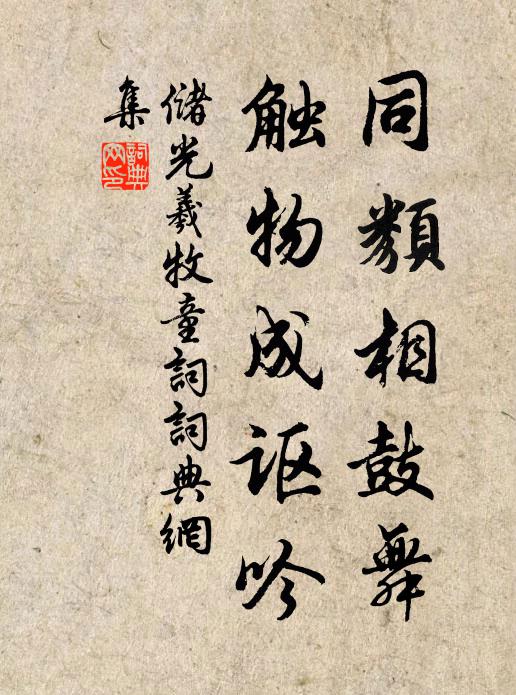 同類相鼓舞
触物成讴吟
儲光羲牧童詞詞典網
集
詞典
网印